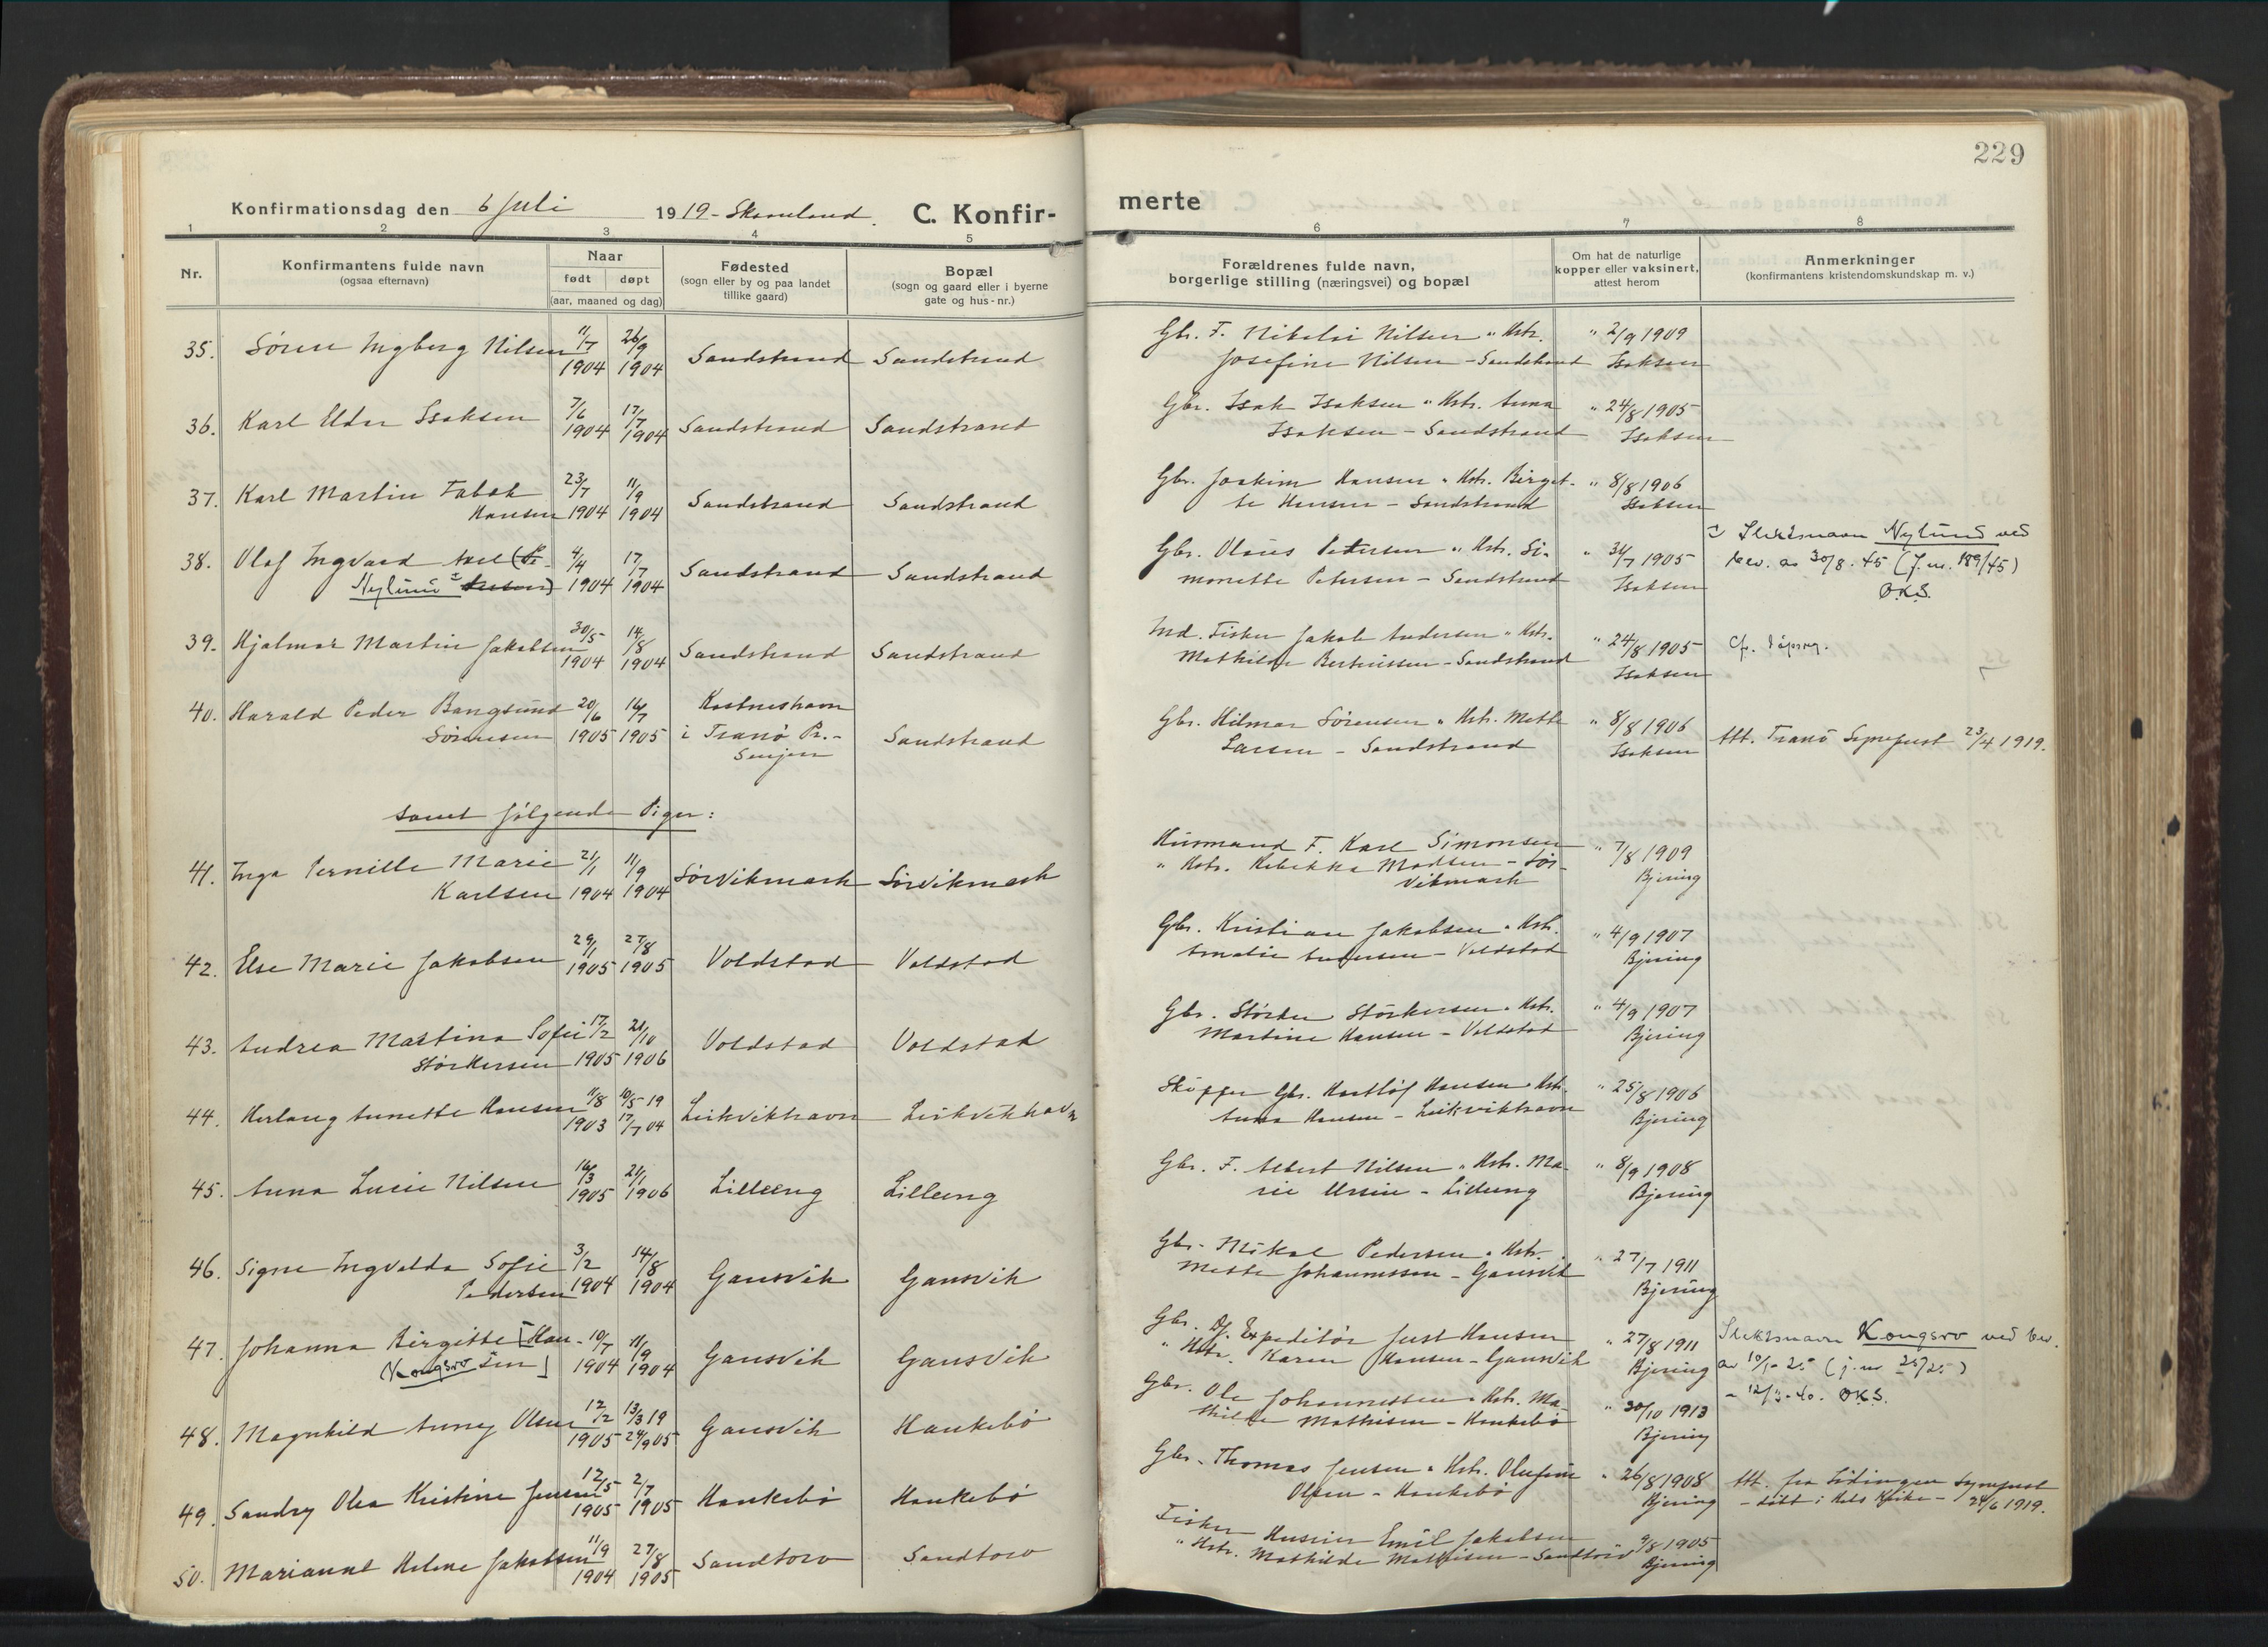 229
Konfirmationsdag den 6 Juli 1919 - Skaanland. C. Konfir-
merte
1 2 3 4 5
6 7 8
Nr.
Konfirmantens fulde navn
(ogsaa efternavn)
Naar
født døpt
(aar, maaned og dag)
Fødested
(sogn eller by og paa landet
tillike gaard)
Bopæl
(sogn og gaard eller i byerne
gate og hus-nr.)
Forældrenes fulde navn,
borgerlige stilling (næringsvei) og bopæl
Om hat de naturlige
kopper eller vaksinert,
attest herom
Anmerkninger
(konfirmantens kristendomskundskap m. v.)
35. Sören Ingberg Nilsen 11/7 1904 26/9 1904 Sandstrand Sandstrand
Gbr. F. Nikolai Nilsen " Hstr. " 2/9 1909
Josefine Nilsen - Sandstrand Isaksen
36. Karl Elder Isaksen 7/6 1904 17/7 1904 Sandstrand Sandstrand
Gbr. Isak Isaksen " Hstr. Anna " 24/8 1905
Isaksen - Sandstrand Isaksen
37. Karl Martin Fabok 23/7 11/9 Sandstrand Sandstrand
Hansen 1904 1904
Gbr. Joakim Hansen " Hstr. Birget- " 8/8 1906
te Hansen - Sandstrand Isaksen
38. Olaf Ingvard Axel (Pe- 4/4 17/7 Sandstrand Sandstrand
Nylund tersen) 1904 1904
Gbr. Olaus Petersen " Hstr. Si- " 31/7 1905
monette Petersen - Sandstrand Isaksen
Slektsnavn Nylund ved
bev. av 30/8.45 (J.nr. 189/45)
O.K.S.
39. Hjalmar Martin Jakobsen 30/5 1904 14/8 1904 Sandstrand Sandstrand
Ind. Fisker Jakob Andersen " Hstr. " 24/8 1905
Mathilde Bertinssen - Sandstrand Isaksen
Cf. dåpsreg.
40. Harald Peder Bangsund 20/6 16/7 Kastneshavn
Sörensen 1905 1905 i Tranö Pr.- Sandstrand
Senjen
Gbr. Hilmar Sörensen " Hstr. Mette " 8/8 1906
Larsen - Sandstrand Isaksen
Att. Tranö Sogneprest 23/4 1919.
samt fölgende Piger:
41. Inga Pernille Marie 21/1 11/9 Sörvikmark Sörvikmark
Karlsen 1904 1904
Husmand F. Karl Simonsen " 7/8 1909
" Hstr. Rebekka Madsen - Sör- Bjering
vikmark
42. Else Marie Jakobsen 29/1 1905 27/8 1905 Voldstad Voldstad
Gbr. Kristian Jakobsen " Hstr. " 4/9 1907
Amalie Andersen - Voldstad Bjering
43. Andrea Martina Sofie 17/2 21/10 Voldstad Voldstad
Störkersen 1905 1906
Gbr. Störker Störkersen " Hstr. " 4/9 1907
Martine Hansen - Voldstad Bjering
44. Herlaug Annette Hansen 11/8 1903 10/5-19 17/7 04 Leikvikhavn Leikvikhavn
Skipper Gbr. Hartlöf Hansen " Hstr. " 25/8 1906
Anna Hansen - Leikvikhavn Bjering
45. Anna Lucie Nilsen 16/3 1905 21/1 1906 Lilleeng Lilleeng
Gbr. F. Albert Nilsen " Hstr. Ma- " 8/9 1908
rie Ursin - Lilleeng Bjering
46. Signe Ingvalda Sofie 3/2 14/8 Gansvik Gansvik
Pedersen 1904 1904
Gbr. Mikal Pedersen " Hstr. " 27/7 1911
Mette Johannessen - Gansvik Bjering
47. Johanna Birgitte [Han- 10/7 11/9 Gansvik Gansvik
Kongsro sen] 1904 1904
Gbr. Df. Expeditör Just Hansen " 27/8 1911
" Hstr. Karen Hansen - Gansvik Bjering
Slektsnavn Kongsro ved bev.
av 10/1-25 (j.nr 25/25)
- 12/11-40. O.K.S.
48. Magnhild Anney Olsen 12/2 1905 13/3 19 24/9 05 Gansvik Haukebö
Gbr. Ole Johannessen " Hstr. Ma- " 30/10 1913
thilde Mathisen - Haukebö Bjering
49. Sandry Olea Kristine Jensen 12/5 1905 2/7 1905 Haukebö Haukebö
Gbr. Thomas Jensen " Hstr. Olufine " 26/8 1908
Olsen - Haukebö Bjering
Att. fra Lödingen Sogneprest
- döbt i Hols Kirke - 24/6 1919.
50. Marianne Helene Jakobsen 11/9 1904 27/8 1905 Sandtorv Sandtorv
Fisker Huseier Emil Jakobsen 9/8 1905
" Hstr. Mathilde Mathisen - Sandtorv Bjering